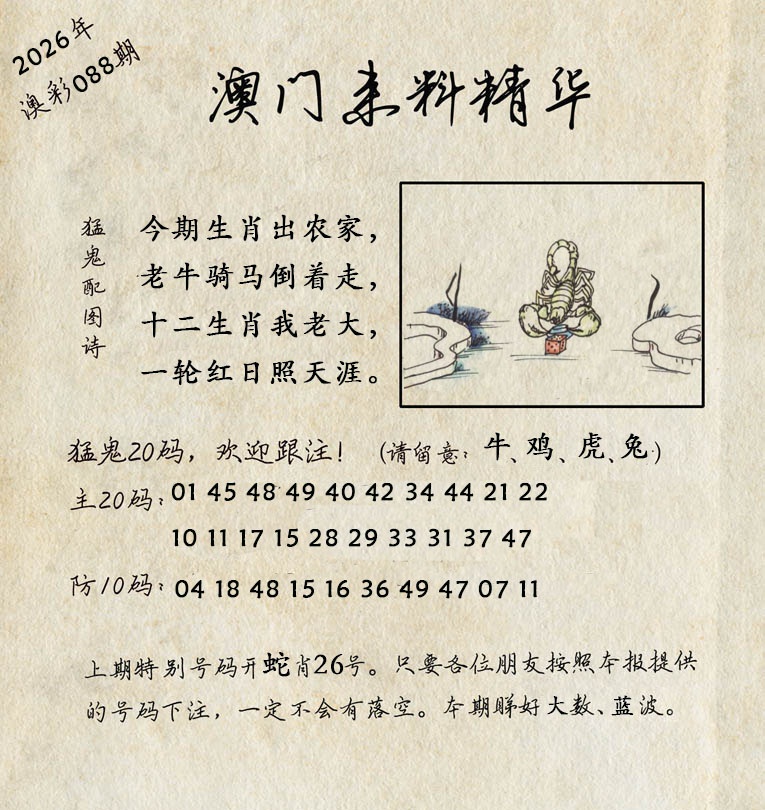 2026年
澳彩088期
澳门来料精华
猛鬼配图诗
今期生肖出农家，
老牛骑马倒着走，
十二生肖我老大，
一轮红日照天涯。
猛鬼20码，欢迎跟注！（请留意：牛、鸡、虎、兔）
主20码：01 45 48 49 40 42 34 44 21 22
10 11 17 15 28 29 33 31 37 47
防10码：04 18 48 15 16 36 49 47 07 11
上期特别号码开蛇肖26号。只要各位朋友按照本报提供
的号码下注，一定不会有落空。本期睇好大数、蓝波。